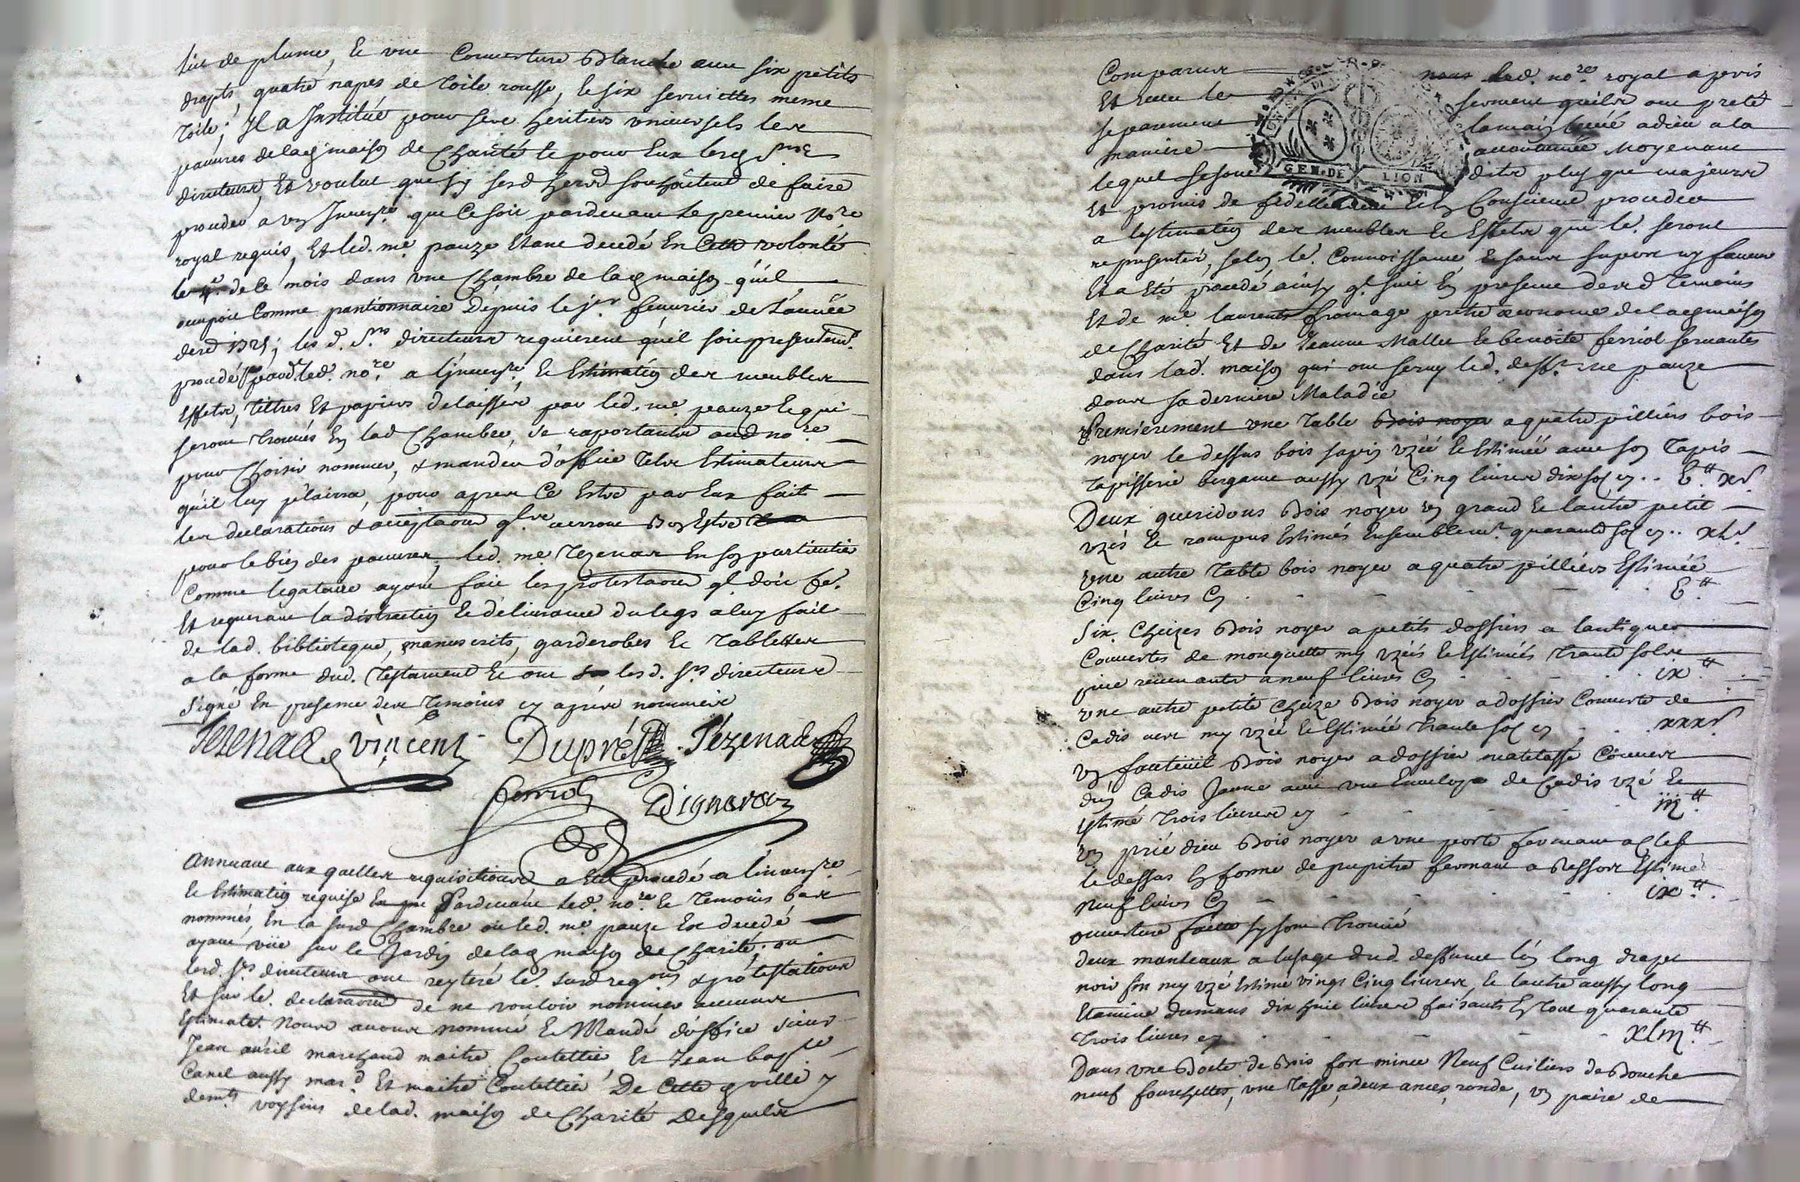 lit de plume, et une Couverture Blanche avec six petits
drapts, quatre napes de Toile rousse, et six serviettes meme
Toile; Il a Institué pour ses heritiers universels les
pauvres de lad. maison de Charité et pour Eux lesd. Srs
directeurs, Et voulut que sy sesd. herrs souhaitent de faire
proceder a un Inventre. que Ce soit pardevant Le premier Nore
royal requis, Et led. me. pauze Etant decedé En Cette volonté
le de Ce mois dans une Chambre de lad. maison qu'il
occupoit Comme pantionnaire Depuis le jer fevvrier de L'année
derre 1725; les d. Srs directeurs requierent qu'il soit presentemt.
procedé par led. nore. a Linventre. Et Estimation des meubles
Effets, tittres Et papiers delaissés par led. me. pauze Et qui
seront Trouvés En lad Chambre, se raportants aud nore
pour Choisir nommer, & mander d'office Tels Estimateurs
qu'il luy plairra, pour apres Ce Estre par Eux fait
les declarations & acceptaons qls verront Bon Estre
pour le bien des pauvres, led. me Tezenas En son particulier
Comme legataire ayant fait les protestaons ql doit fre.
Et requerant la distraction Et delivrance du legs a luy fait
de lad. biblioteque, manuscrits, garderobes Et Tablettes
a la forme dud. Testament Et ont lesd. Srs directeurs
Signé En presence des Temoins cy apres nommés
Tezenas Vincent Dupré Tézenas
ferriol Dignaron
Annuant aux quelles requisitions a Eté procedé a linventre.
Et Estimation requise Pardevant Led. nore. Et Temoins bas
nommés, En la susd Chambre ou led. me pauze Est decedé
ayant vüe sur le Jardin de lad. maison de Charité, ou
lesd. Srs directeurs ont reyteré les susd reqons & protestations
Et sur la declaraon de ne vouloir nommer aucuns
Estimatrs. Nous avons nommé Et Mandé d'office sieurs
Jean avril marchand maitre Coutellier Et Jean Bapte
Canel aussy mard. Et maitre Coutellier De Cette ville y
demts voysins de lad. maison de Charité Desquels
Comparus nous led. nore royal a pris
Et receu le serment quils ont preté
separement la main levée a dieu a la
maniere accoutumée Moyenant
lequel se sont dits plus que majeurs
GEN. DE LION
Et promis de fidellement Et En Conscience proceder
a lestimation des meubles Et Effets que le. seront
representés, selon le. Connoissance & sans suport ny faveur
Et a Eté procedé ainsy ql suit En presence desd. Temoins
Et de me. laurents fromage pretre œconome de lad. maison
de Charité Et de Jeanne Mallet Et benoite ferriol servantes
dans lad. maison qui ont servy led. defft. me pauze
dans sa derniere Maladie
Premierement une Table Bois noyer a quatre pilliers bois
noyer le dessus bois sapin uzée Et Estimée avec son Tapis
Tapisserie bergame aussy uzé Cinq livres dix sol cy .. 5tt xs.
Deux gueridons Bois noyer un grand Et lautre petit
uzés Et rompus Estimés Ensemblemt. quarante sol cy .. xLs.
Une autre Table bois noyer a quatre pilliers Estimée
Cinq livres Cy . . . 5tt
Six Cheizes Bois noyer a petits dossiers a lantique
Couvertes de mouquette my uzées Et Estimées Trante sols
piece revenants a neuf livres Cy . . ixtt
une autre petite Cheize Bois noyer a dossier Couverte de
Cadis vert my uzée Et Estimée Trante sol cy . . xxxs
un fauteüil Bois noyer a dossier matelassé Couvert
dun Cadis Jaune avec une Enveloppe de Cadis uzé Et
Estimé Trois livres cy . . iijtt
un prié dieu Bois noyer a une porte fermant a Clef
le dessus En forme de pupitre fermant a Ressort Estimé
Neuf livres Cy . . ixtt.
ouverture faitte sy sont Trouvé
deux manteaux a lusage dud. deffunt lun long drapt
noir fin my uzé Estimé vingt Cinq livres, Et lautre aussy long
Etamine dumans dix huit livres faisants En Tout quarante
Trois livres cy . . xLiijtt
Dans une Boete de Bois fort mince Neuf Cuilliers de Bouche
neuf fourchettes, une Tasse a deux ances ronde, un paire de